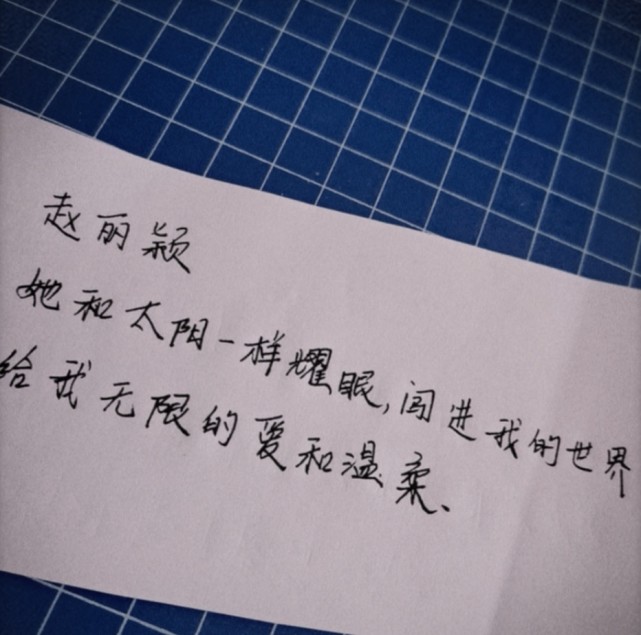 赵丽颖
她和太阳一样耀眼,闯进我的世界
给我无限的爱和温柔、